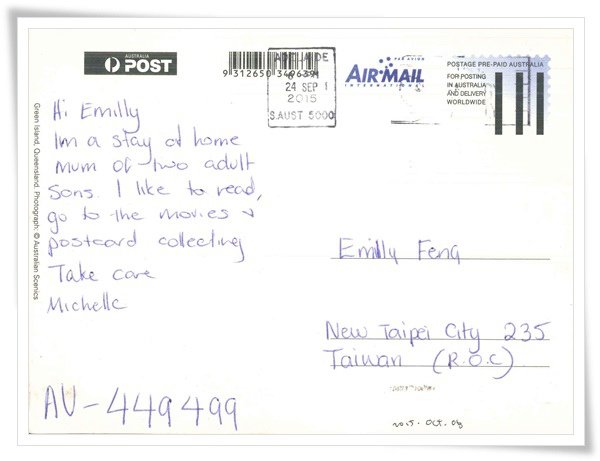 AUSTRALIA
POST
9 312650 349639
ADELAIDE
24 SEP
2015
S.AUST 5000
PAR AVION
AIR MAIL
INTERNATIONAL
POSTAGE PRE-PAID AUSTRALIA
FOR POSTING
IN AUSTRALIA
AND DELIVERY
WORLDWIDE
Green Island, Queensland. Photograph: © Australian Scenics
Hi Emilly
Im a stay at home
mum of two adult
sons. I like to read,
go to the movies &
postcard collecting
Take care
Michelle
AU-449499
Emilly Feng
New Taipei City 235
Taiwan (R.O.C)
2015. OCT. 08